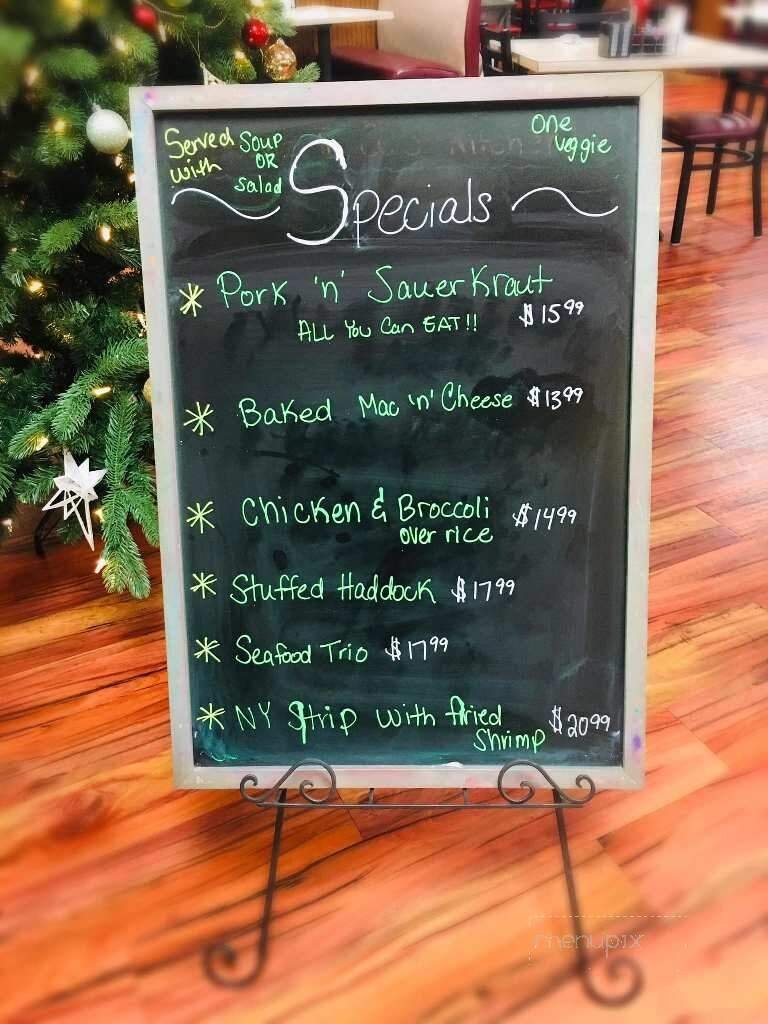 Served Soup
with OR
salad
One
veggie
Specials
* Pork 'n' SauerKraut
ALL You Can EAT!! $15.99
* Baked Mac 'n' Cheese $13.99
* Chicken & Broccoli $14.99
over rice
* Stuffed Haddock $17.99
* Seafood Trio $17.99
* NY Strip with fried $20.99
Shrimp
menupix